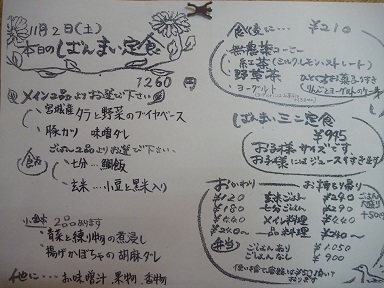 11月2日(土)
本日のしばんまい定食
1260
メイン1品よりお選び下さい
宮城産タラと野菜のブイヤベース
豚カツ 味噌ダレ
ごはん1品よりお選び下さい
七分…鯛飯
玄米…小豆と黒米入り
小鉢 2品あります
青菜と練り物の煮浸し
揚げかぼちゃの胡麻ダレ
他に…お味噌汁 果物 香物
食後に… ¥210
無農薬コーヒー
紅茶(ミルク・レモン・ストレート)
野草茶
ヨーグルト
りんごとヨーグルトのケーキ
しばんまいミニ定食
¥945
お子様サイズです
お子様にはジュースつきます
おかわり お持ち帰り
¥120 玄米ごはん ¥240
¥180 七分ごはん ¥290
¥440 メイン料理 ¥440
¥240〜 一品料理 ¥240〜
弁当 ごはんあり 1050
ごはんなし 900